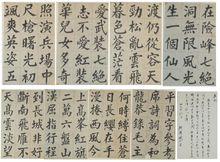 颯爽英姿五
尺槍曙光初
照演兵場中
華兒女多奇
志不愛紅裝
愛武裝七絕
暮色蒼茫看
勁松亂雲飛
渡仍從容天
生一個仙人
洞無限風光
在險峰七絕
天高雲淡望
斷南飛雁不
到長城非好
漢屈指行程
二萬六盤山
上高峰紅旗
漫捲西風今
日長纓在手
何時縛住蒼
龍清平樂主
席詩詞為和
平習字參考